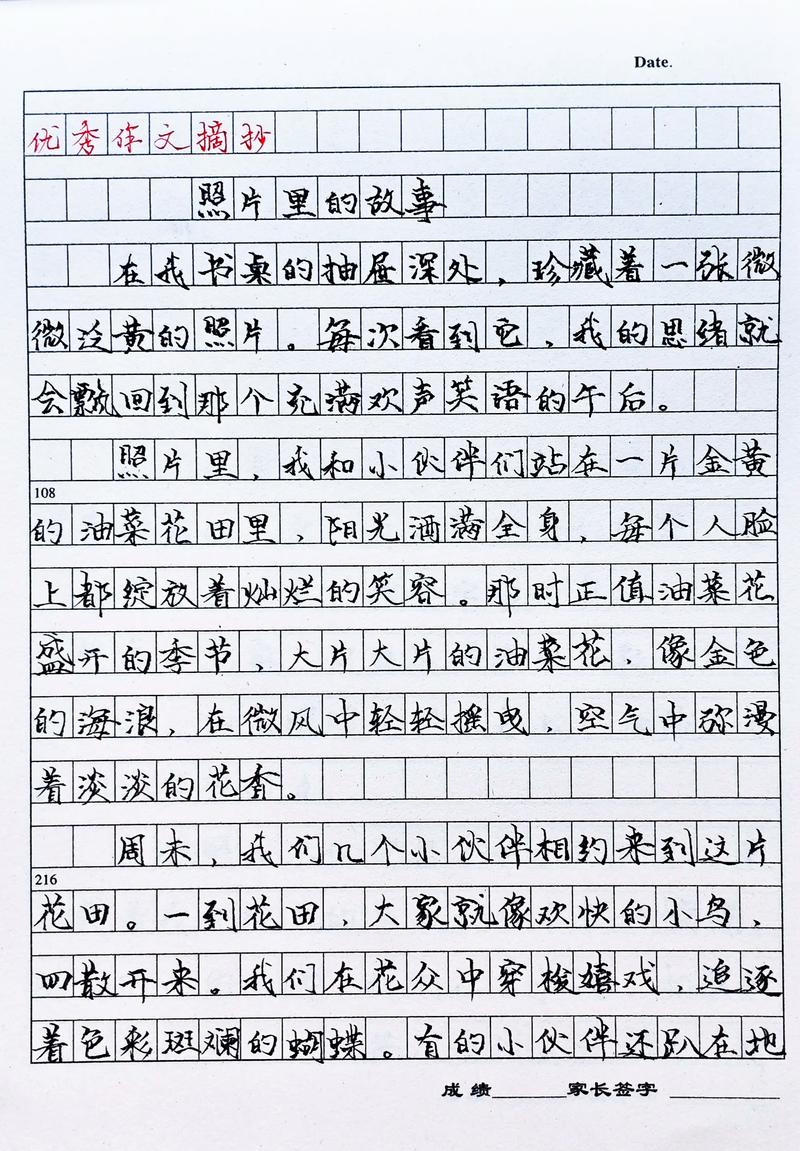 Date.
优秀作文摘抄
照片里的故事
在我书桌的抽屉深处，珍藏着一张微
微泛黄的照片。每次看到它，我的思绪就
会飘回到那个充满欢声笑语的午后。
照片里，我和小伙伴们站在一片金黄
108
的油菜花田里，阳光洒满全身，每个人脸
上都绽放着灿烂的笑容。那时正值油菜花
盛开的季节，大片大片的油菜花，像金色
的海浪，在微风中轻轻摇曳，空气中弥漫
着淡淡的花香。
周末，我们几个小伙伴相约来到这片
216
花田。一到花田，大家就像欢快的小鸟，
四散开来。我们在花众中穿梭嬉戏，追逐
着色彩斑斓的蝴蝶。有的小伙伴还趴在地
成绩______家长签字 ________